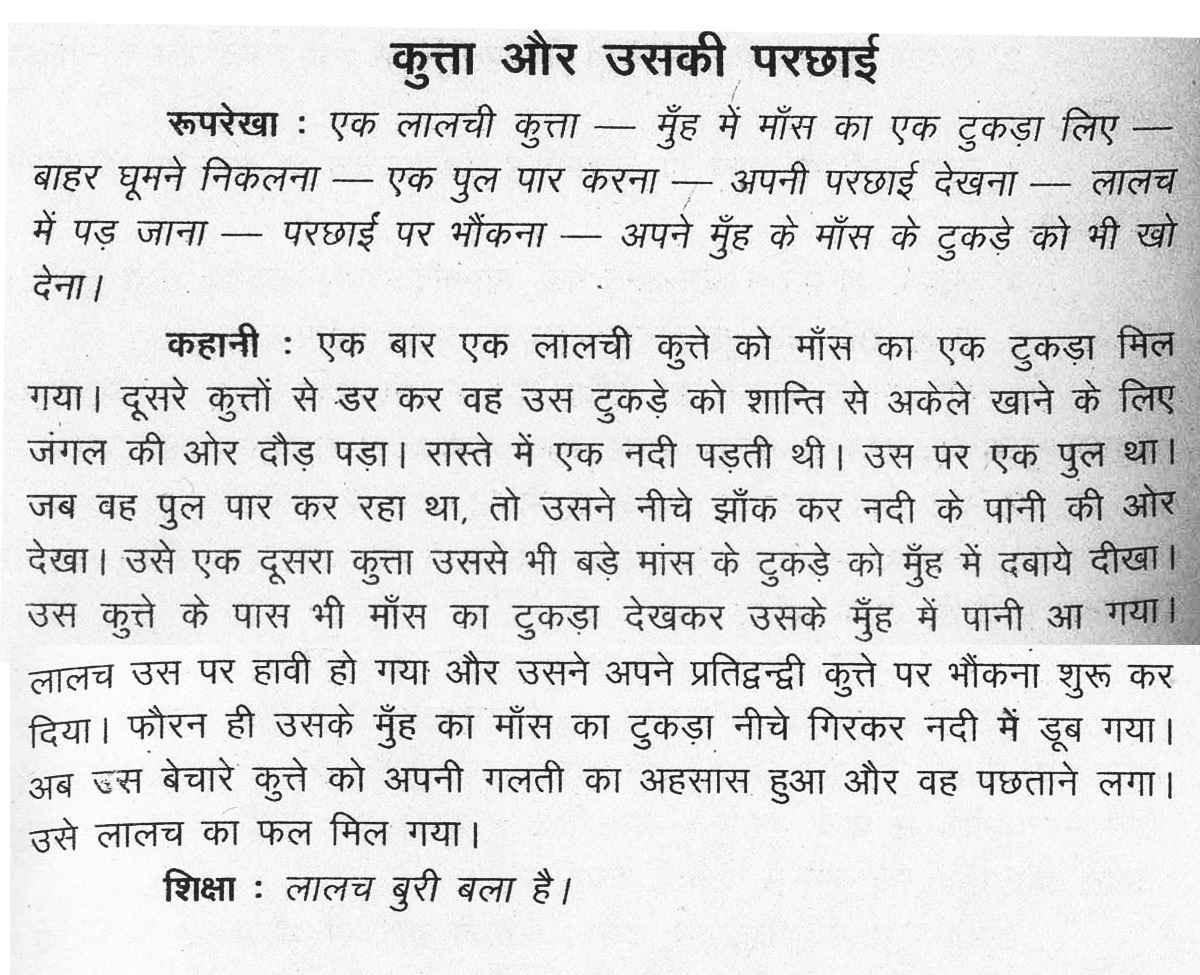 कुत्ता और उसकी परछाई
रूपरेखा : एक लालची कुत्ता — मुँह में माँस का एक टुकड़ा लिए —
बाहर घूमने निकलना — एक पुल पार करना — अपनी परछाई देखना — लालच
में पड़ जाना — परछाईं पर भौंकना — अपने मुँह के माँस के टुकड़े को भी खो
देना।
कहानी : एक बार एक लालची कुत्ते को माँस का एक टुकड़ा मिल
गया। दूसरे कुत्तों से डर कर वह उस टुकड़े को शान्ति से अकेले खाने के लिए
जंगल की ओर दौड़ पड़ा। रास्ते में एक नदी पड़ती थी। उस पर एक पुल था।
जब वह पुल पार कर रहा था, तो उसने नीचे झाँक कर नदी के पानी की ओर
देखा। उसे एक दूसरा कुत्ता उससे भी बड़े मांस के टुकड़े को मुँह में दबाये दीखा।
उस कुत्ते के पास भी माँस का टुकड़ा देखकर उसके मुँह में पानी आ गया।
लालच उस पर हावी हो गया और उसने अपने प्रतिद्वन्द्वी कुत्ते पर भौंकना शुरू कर
दिया। फौरन ही उसके मुँह का माँस का टुकड़ा नीचे गिरकर नदी में डूब गया।
अब उस बेचारे कुत्ते को अपनी गलती का अहसास हुआ और वह पछताने लगा।
उसे लालच का फल मिल गया।
शिक्षा : लालच बुरी बला है।